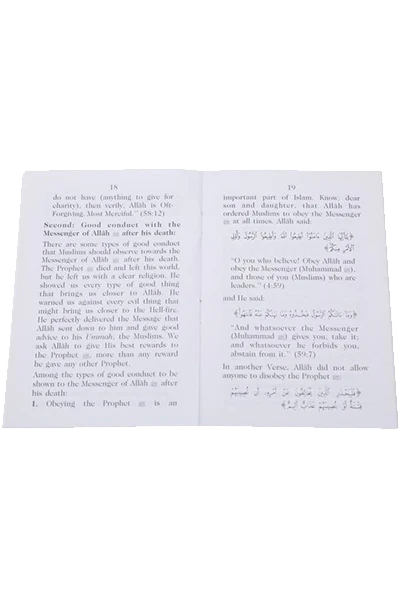 18
do not have (anything to give for
charity), then verily, Allâh is Oft-
Forgiving, Most Merciful." (58:12)
Second: Good conduct with the
Messenger of Allâh ﷺ after his death:
There are some types of good conduct
that Muslims should observe towards the
Messenger of Allâh ﷺ after his death.
The Prophet ﷺ died and left this world,
but he left us with a clear religion. He
showed us every type of good thing
that brings us closer to Allâh. He
warned us against every evil thing that
might bring us closer to the Hell-fire.
He perfectly delivered the Message that
Allâh sent down to him and gave good
advice to his Ummah, the Muslims. We
ask Allâh to give His best rewards to
the Prophet ﷺ, more than any reward
he gave any other Prophet.
Among the types of good conduct to be
shown to the Messenger of Allâh ﷺ after
his death:
1. Obeying the Prophet ﷺ is an
19
important part of Islam. Know, dear
son and daughter, that Allâh has
ordered Muslims to obey the Messenger
ﷺ at all times. Allâh said:
﴿يَٰٓأَيُّهَا ٱلَّذِينَ ءَامَنُوٓا۟ أَطِيعُوا۟ ٱللَّهَ وَأَطِيعُوا۟ ٱلرَّسُولَ وَأُو۟لِى
ٱلْأَمْرِ مِنكُمْ﴾
"O you who believe! Obey Allâh and
obey the Messenger (Muhammad ﷺ),
and those of you (Muslims) who are
leaders." (4:59)
and He said:
﴿وَمَآ ءَاتَىٰكُمُ ٱلرَّسُولُ فَخُذُوهُ وَمَا نَهَىٰكُمْ عَنْهُ فَٱنتَهُوا۟﴾
"And whatsoever the Messenger
(Muhammad ﷺ) gives you, take it;
and whatsoever he forbids you,
abstain from it." (59:7)
In another Verse, Allâh did not allow
anyone to disobey the Prophet ﷺ
﴿فَلْيَحْذَرِ ٱلَّذِينَ يُخَالِفُونَ عَنْ أَمْرِهِۦٓ أَن تُصِيبَهُمْ
فِتْنَةٌ أَوْ يُصِيبَهُمْ عَذَابٌ أَلِيمٌ﴾